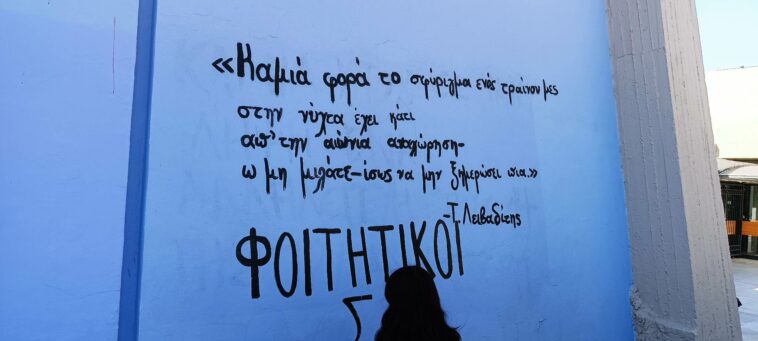 «Καμιά φορά το σφύριγμα ενός τραίνου μες
στην νύχτα έχει κάτι
απ' την αιώνια αναχώρηση-
ω μη μιλάτε-ίσως να μην ξημερώσει πια.»
-Τ. Λειβαδίτης
ΦΟΙΤΗΤΙΚΟΙ
Σ